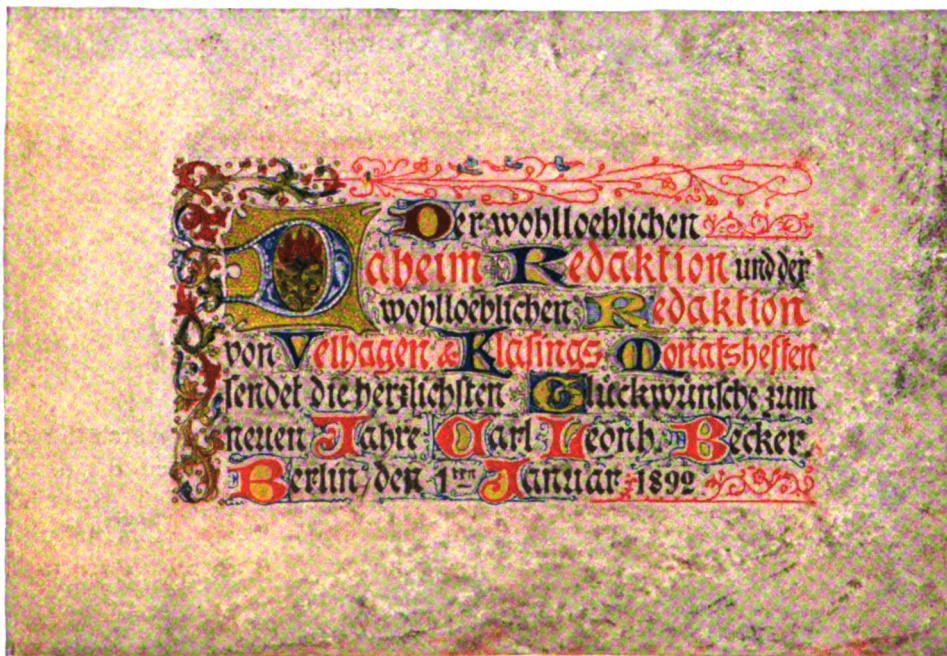 Der wohlloeblichen
Daheim Redaktion und der
wohlloeblichen Redaktion
von Velhagen & Klasings Monatsheften
sendet die herzlichsten Glückwünsche zum
neuen Jahre Carl Leonh. Becker.
Berlin, den 1ten Januar 1892